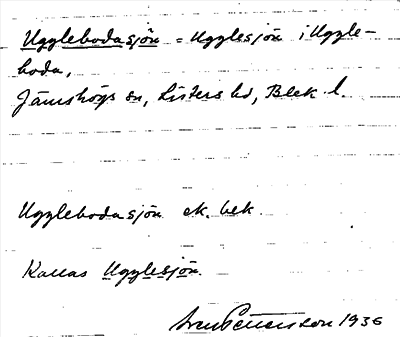 Ugglebodasjön = Ugglesjön i Uggle-
boda,
Jämshögs sn, Listers hd, Blek. l.
Ugglebodasjön ek. bek.
Kallas Ugglesjön.
Sven Petersson 1936